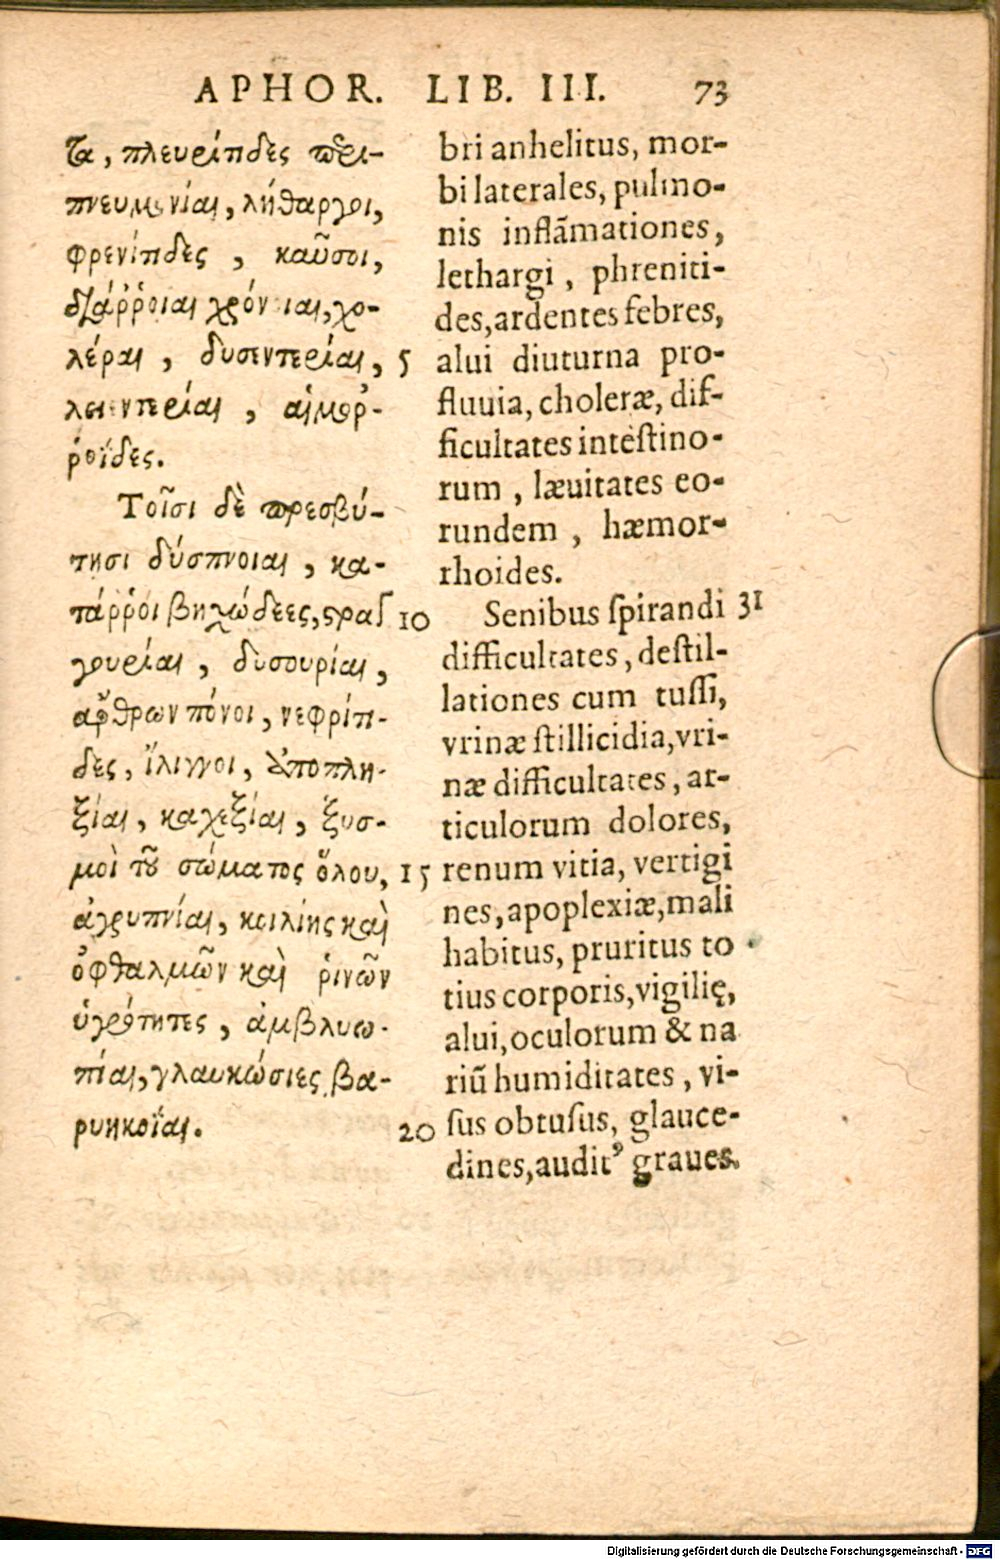 APHOR. LIB. III. 73
τα, πλευρίτιδες περι-
πνευμονίαι, λήθαργοι,
φρενίτιδες, καῦσοι,
διάῤῥοιαι χρόνιαι, χο-
λέραι, δυσεντερίαι, 5
λειεντερίαι, αἱμοῤ-
ῥοΐδες.
Τοῖσι δὲ πρεσβύ-
τησι δύσπνοιαι, κα-
τάῤῥοι βηχώδεες, στραγ 10
γουρίαι, δυσουρίαι,
ἄρθρων πόνοι, νεφρίτι-
δες, ἴλιγγοι, ἀποπλη-
ξίαι, καχεξίαι, ξυσ-
μοὶ τοῦ σώματος ὅλου, 15
ἀγρυπνίαι, κοιλίης καὶ
ὀφθαλμῶν καὶ ῥινῶν
ὑγρότητες, ἀμβλυω-
πίαι, γλαυκώσιες, βα-
ρυηκοΐαι. 20
bri anhelitus, mor-
bi laterales, pulmo-
nis inflãmationes,
lethargi, phreniti-
des, ardentes febres,
alui diuturna pro-
fluuia, choleræ, dif-
ficultates intestino-
rum, læuitates eo-
rundem, hæmor-
rhoides.
Senibus spirandi 31
difficultates, destil-
lationes cum tussi,
vrinæ stillicidia, vri-
næ difficultates, ar-
ticulorum dolores,
renum vitia, vertigi
nes, apoplexiæ, mali
habitus, pruritus to
tius corporis, vigilię,
alui, oculorum & na
riũ humiditates, vi-
sus obtusus, glauce-
dines, audit⁹ graues.
Digitalisierung gefördert durch die Deutsche Forschungsgemeinschaft - DFG